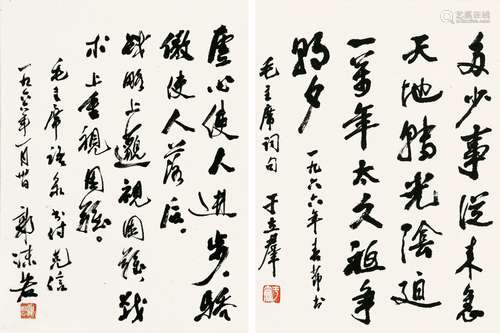 多少事從来急
天地轉光陰迫
一萬年太久祗争
朝夕
毛主席詞句 一九六六年春節书
于立群
虚心使人進步，驕
傲使人落后。
战略上藐視困難，战
术上重視困難。
毛主席語录 书付
一九六六年一月 郭沫若
艺狐在线